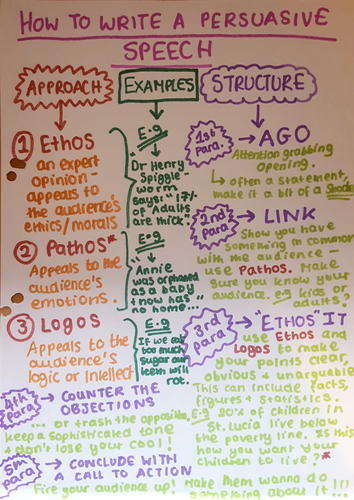 HOW TO WRITE A PERSUASIVE
SPEECH
APPROACH
1 Ethos
an expert
opinion -
appeals to
the audience's
ethics/morals
2 Pathos*
Appeals to the
audience's
emotions.
3 Logos
Appeals to the
audience's
logic or intellect
EXAMPLES
E.g
"Dr Henry
Spiggle-
worm
says: "17%
of Adults
are thick."
E.g
"Annie
was orphaned
as a baby
+ now has
no home..."
E.g
If we eat
too much
sugar our
teeth will
rot.
STRUCTURE
1st
Para.
AGO
Attention grabbing
opening.
often a statement,
make it a bit of a shock
2nd
para
LINK
Show you have
something in common
with the audience -
use Pathos. Make
sure you know your
audience. eg kids or
adults?
3rd
para
"ETHOS" IT
use Ethos and
Logos to make
your points clear,
obvious + unarguable
This can include facts,
figures + statistics.
E.g 20% of children in
St. Lucia live below
the poverty line. Is this
how you want your
children to live?*
4th
para
COUNTER THE
OBJECTIONS
... or trash the opposition
keep a sophisticated tone
+ don't lose your cool!
5th
para
CONCLUDE WITH
A CALL TO ACTION
Fire your audience up! Make them wanna do
something about it!!!